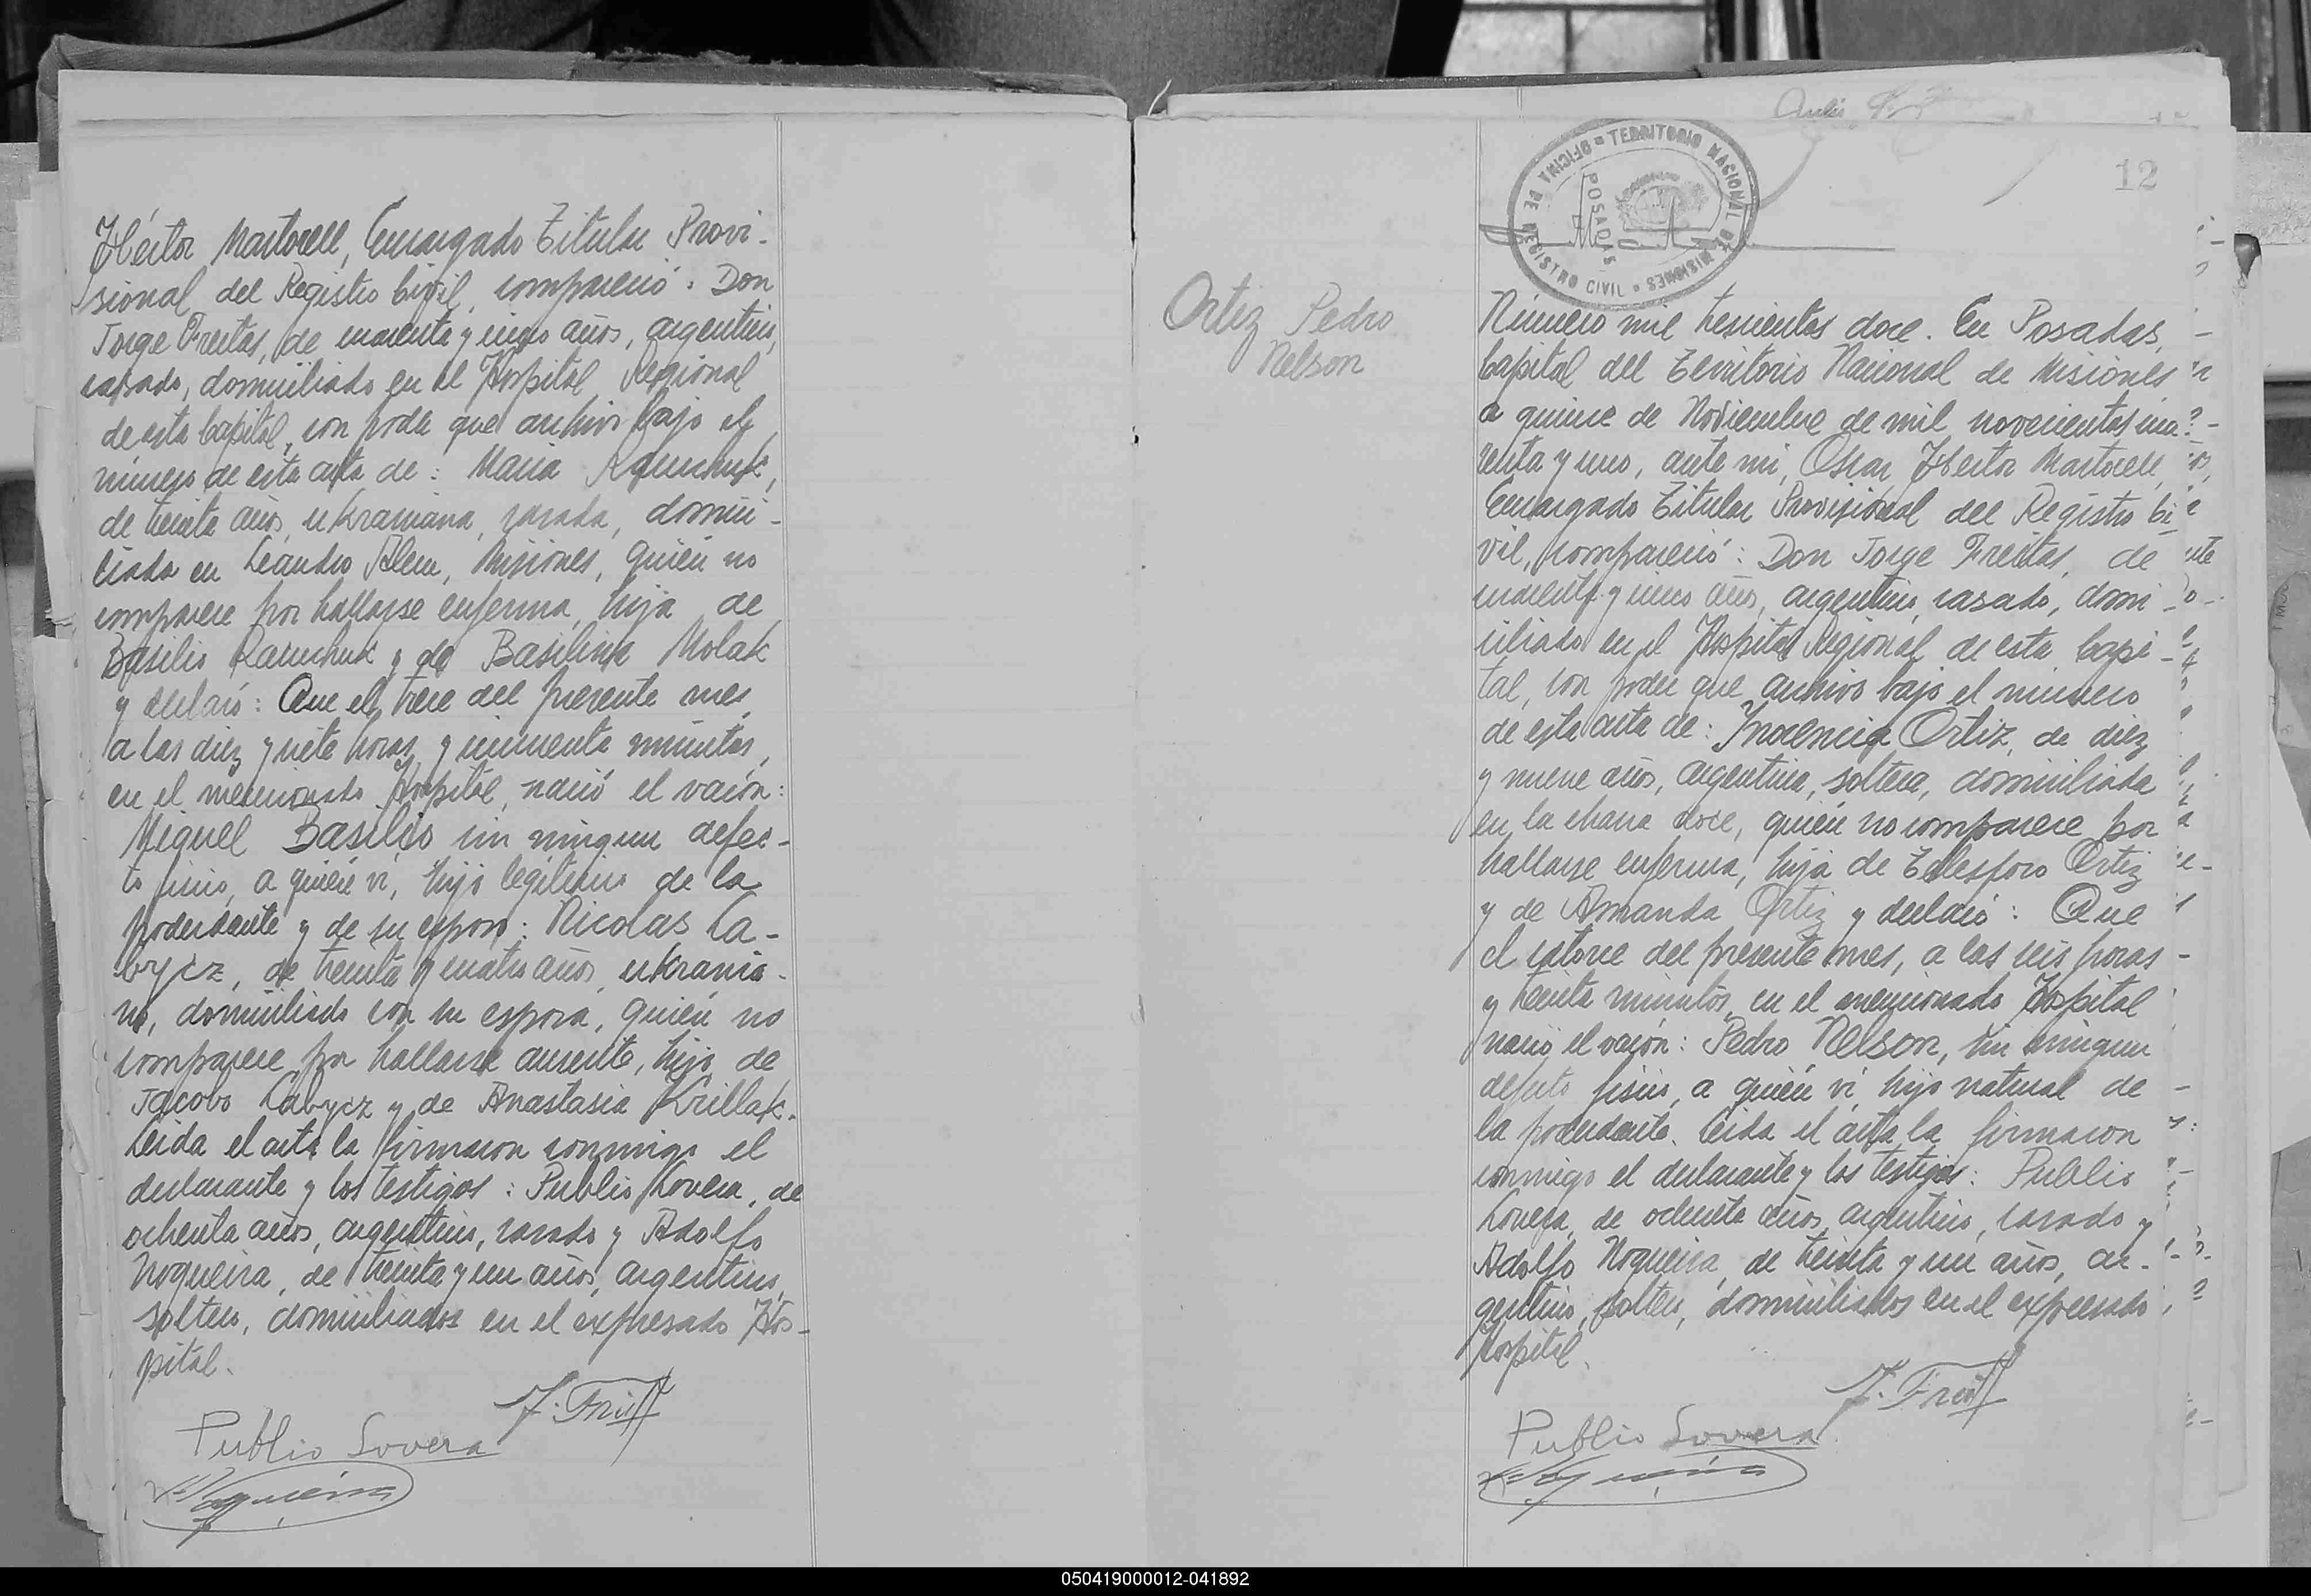 Héctor Martorell, Encargado Titular Provi-
sional del Registro Civil, compareció: Don
Jorge Freitas, de cuarenta y cinco años, argentino,
casado, domiciliado en el Hospital Regional
de esta Capital, con poder que archivo bajo el
número de esta acta de: Maria
de treinta años, ukraniana, casada, domici-
liada en Leandro Alem, Misiones, quién no
comparece por hallarse enferma, hija de
Basilio y de Basilina Molak
y declaró: Que el trece del presente mes,
a las diez y siete horas y cincuenta minutos,
en el mencionado Hospital, nació el varón:
Miguel Basilio sin ningun defec-
to fisico, a quién ví, hijo legítimo de la
poderdante y de su esposo: Nicolas La-
bycz, de treinta y cuatro años, ukrania-
no, domiciliado con su esposa, quién no
comparece por hallarse ausente, hijo de
Jacobo Labycz y de Anastasia Krillak.
Leida el acta la firmaron conmigo el
declarante y los testigos: Publio Lovera, de
ochenta años, argentino, casado y Adolfo
Nogueira, de treinta y un años, argentino,
soltero, domiciliados en el expresado Hos-
pital.
J. Freit
Publio Lovera
Nogueira
12
OFICINA DE REGISTRO CIVIL TERRITORIO NACIONAL DE MISIONES
POSADAS
Ortiz Pedro
Nelson
Número mil trescientos doce. En Posadas,
Capital del Territorio Nacional de Misiones
a quince de Noviembre de mil novecientos cua-
renta y uno, ante mi, Oscar Héctor Martorell,
Encargado Titular Provisional del Registro Ci-
vil, compareció: Don Jorge Freitas, de
cuarenta y cinco años, argentino, casado, domi-
ciliado en el Hospital Regional de esta Capi-
tal, con poder que archivo bajo el número
de esta acta de: Inocencia Ortiz, de diez
y nueve años, argentina, soltera, domiciliada
en la chacra doce, quién no comparece por
hallarse enferma, hija de Telesforo Ortiz
y de Amanda Ortiz y declaró: Que
el catorce del presente mes, a las seis horas
y treinta minutos, en el mencionado Hospital
nació el varón: Pedro Nelson, sin ningun
defecto fisico, a quién ví, hijo natural de
la poderdante. Leida el acta la firmaron
conmigo el declarante y los testigos: Publio
Lovera, de ochenta años, argentino, casado y
Adolfo Nogueira, de treinta y un años, ar-
gentino, soltero, domiciliados en el expresado
Hospital.
J. Freit
Publio Lovera
Nogueira
050419000012-041892